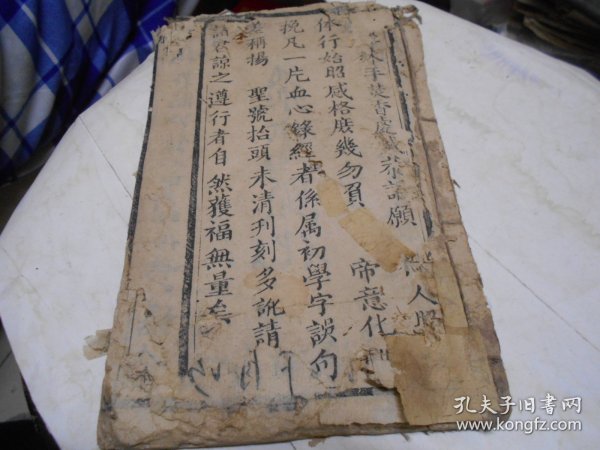 沐手焚香處誠恭誦願
人照
休行始昭感格庶幾勿負
帝意化
挽凡一片血心錄經者係属初學字誤句
差稱揚 聖號抬頭未清刋刻多訛請
諸君諒之遵行者自然獲福無量矣
孔夫子旧书网
www.kongfz.com